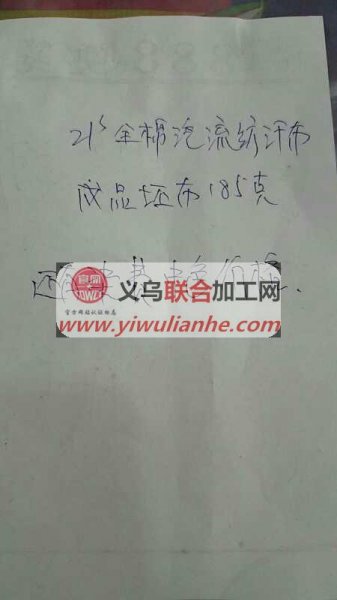 21s全棉汽流纺汗布
成品坯布185克
还有 染色价格.
义乌联合加工网
www.yiwulianhe.com
官方网站认证标志